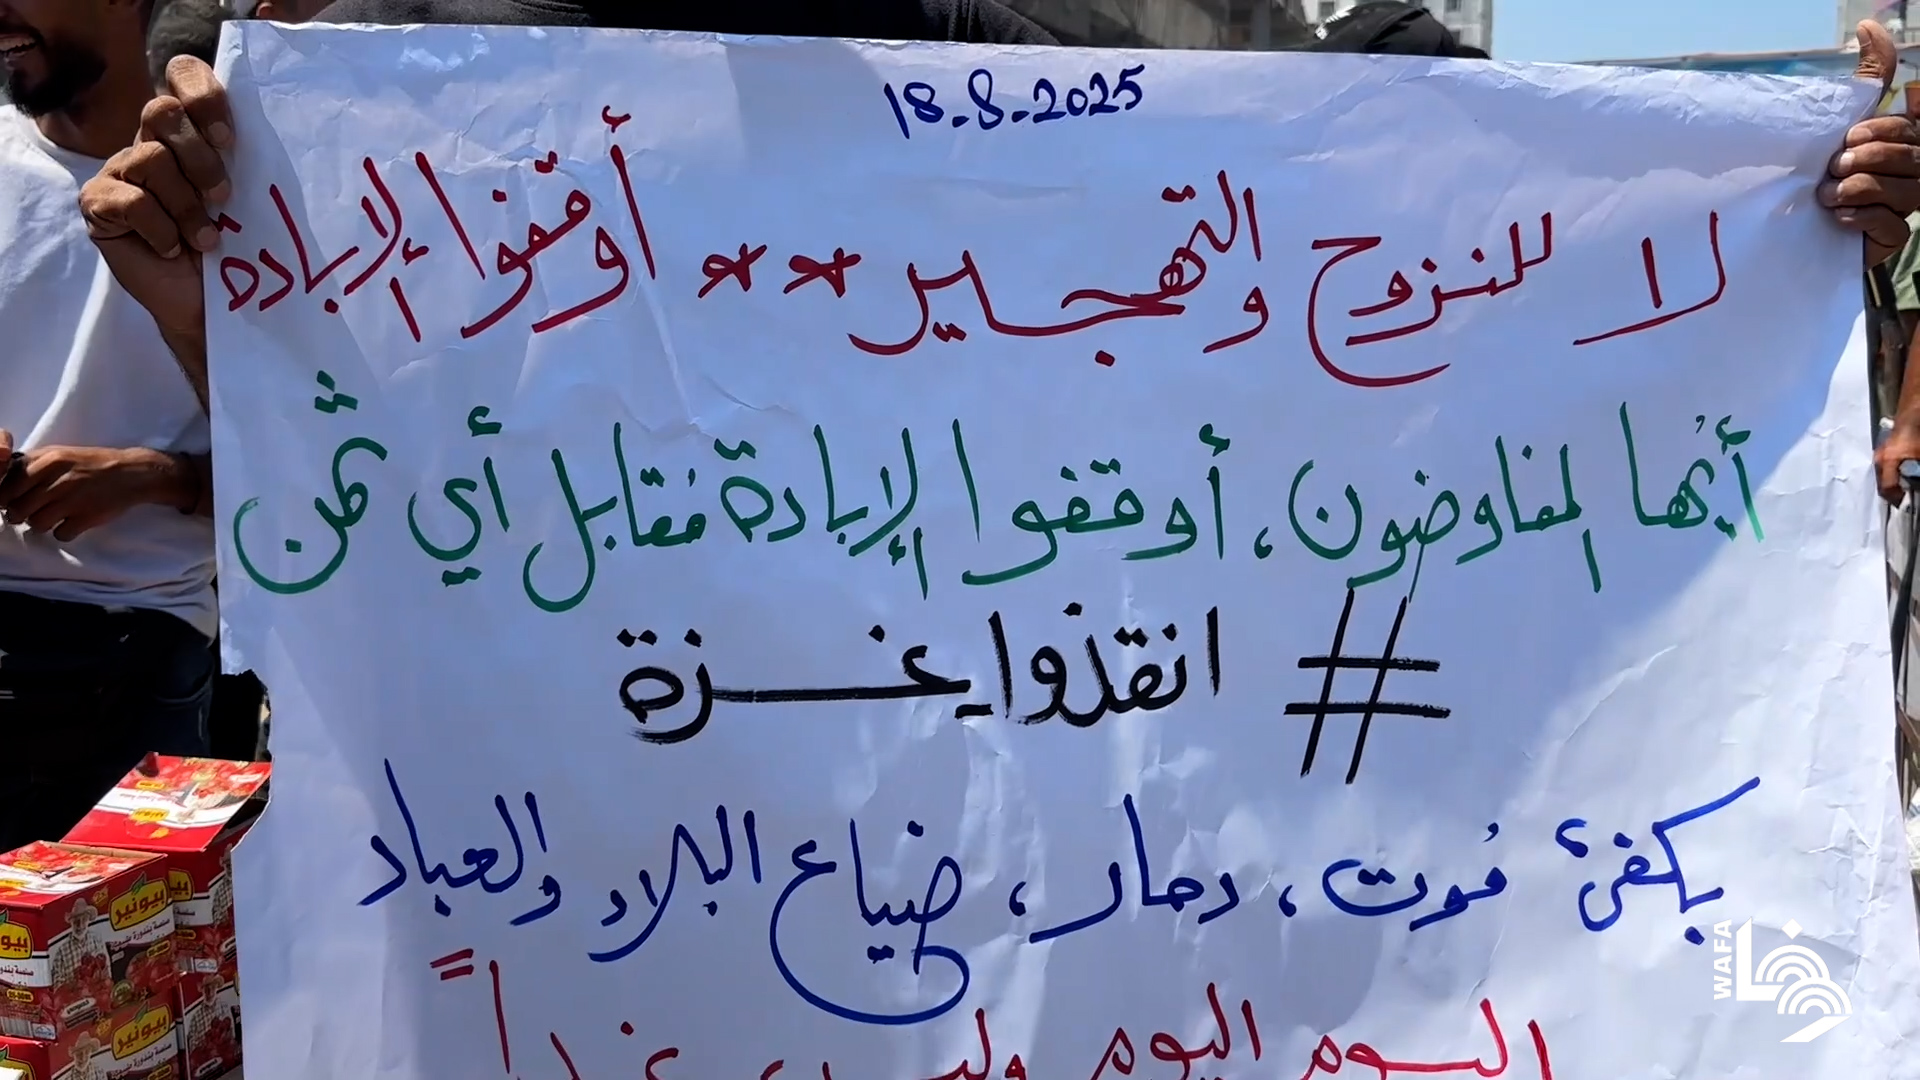 18-8-2025
لا للنزوح والتهجير ** أوقفوا الإبادة
أيُها المفاوضون، أوقفوا الإبادة مُقابل أي ثمن
# انقذوا غزة
بكفيْ مُوت، دمار، ضياع البلاد والعباد
اليوم اليوم وليس غداً
WAFA
وفا
بيونير
صلصة بندورة
بيونير